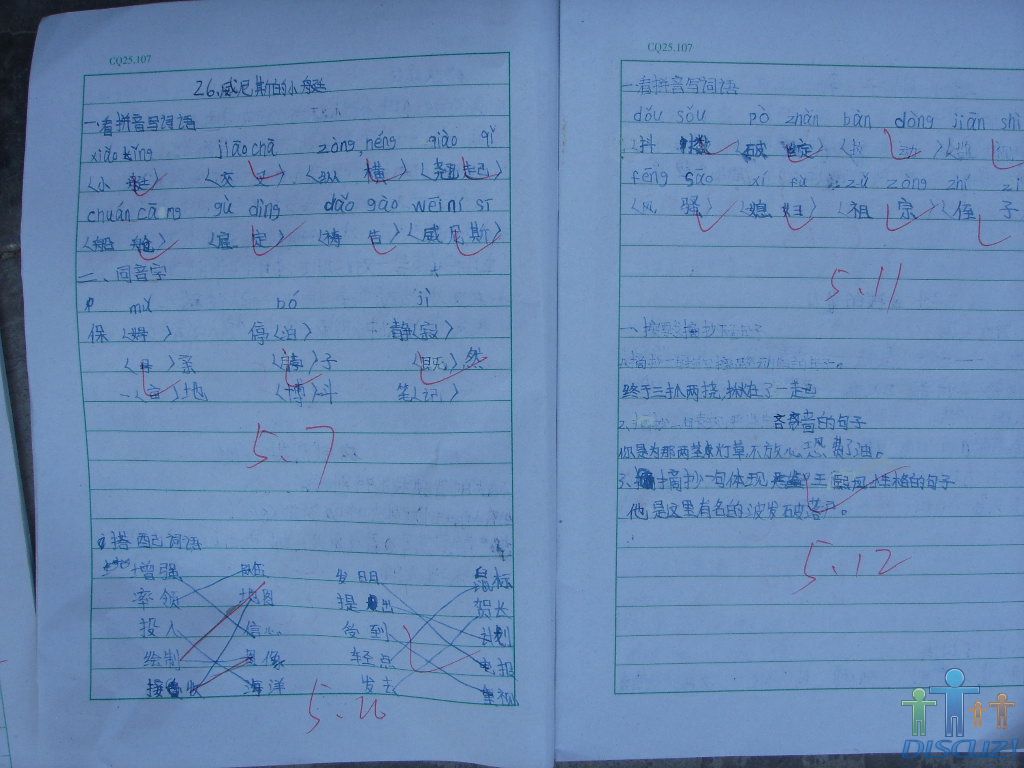 CQ25.107
26、威尼斯的小艇
一看拼音写词语
xiǎo tǐng jiāo chā zòng, néng qiào qǐ
〈小 艇〉 〈交 叉〉 〈纵 横〉 〈翘起〉
chuán cāng gù dìng dǎo gào wēi ní sī
〈船 舱〉 〈固 定〉 〈祷 告〉 〈威尼斯〉
二、同音字
mǔ bó jì
保〈姆〉 停〈泊〉 静〈寂〉
〈母〉亲 〈脖〉子 〈既〉然
一〈亩〉地 〈博〉斗 笔〈记〉
5.7
搭配词语
增强 发明 鼠标
率领 地图 提出 贺长
投入 信心 收到 计划
绘制 图像 轻点 电报
接收 海洋 发去 重视
5.26
CQ25.107
一看拼音写词语
dǒu sǒu pò zhàn bān dòng jiān shì
〈抖 擞〉 〈破 绽〉 动〉
fēng sāo xí fù zǔ zōng zhí zi
〈风 骚〉 〈媳 妇〉 〈祖 宗〉 〈侄 子
5.11
终于三扒两挠,揪在了一起
吝啬的句子
你是为那两茎灯草,不放心,恐费了油。
3、摘抄一句体现王熙凤性格的句子
他是这里有名的泼皮破落户。
5.12
DISCUZ!